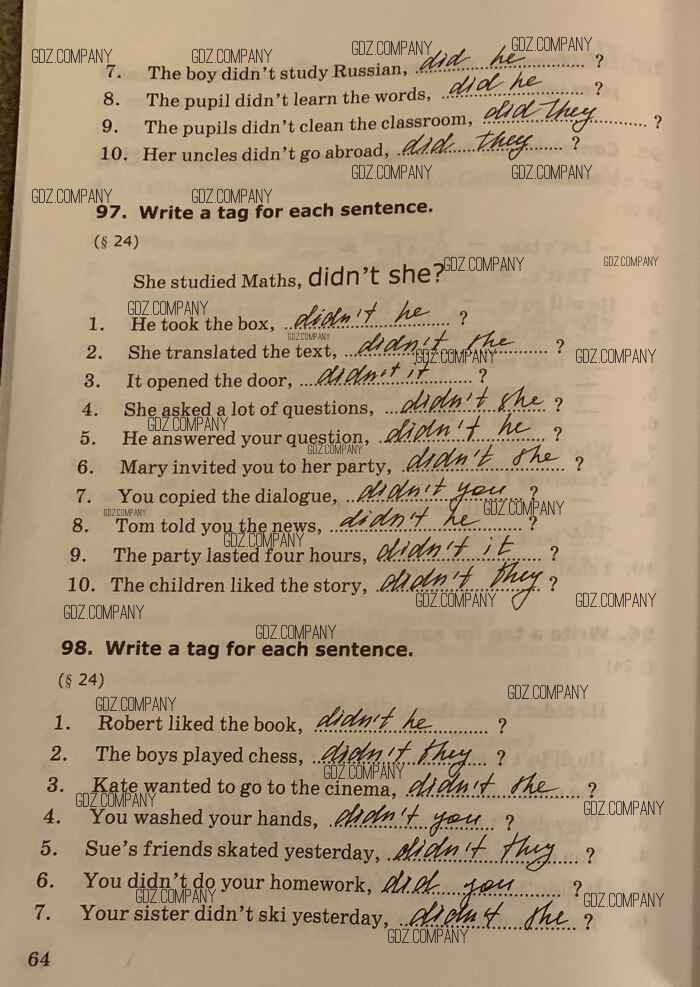 GDZ.COMPANY GDZ.COMPANY GDZ.COMPANY GDZ.COMPANY
7. The boy didn't study Russian, did he ?
8. The pupil didn't learn the words, did he ?
9. The pupils didn't clean the classroom, did they ?
10. Her uncles didn't go abroad, did they ?
GDZ.COMPANY GDZ.COMPANY
GDZ.COMPANY GDZ.COMPANY
97. Write a tag for each sentence.
(§ 24)
GDZ.COMPANY GDZ.COMPANY
She studied Maths, didn't she?
GDZ.COMPANY
1. He took the box, didn't he ?
GDZ.COMPANY
2. She translated the text, didn't she ?
GDZ.COMPANY GDZ.COMPANY
3. It opened the door, didn't it ?
4. She asked a lot of questions, didn't she ?
GDZ.COMPANY
5. He answered your question, didn't he ?
GDZ.COMPANY
6. Mary invited you to her party, didn't she ?
7. You copied the dialogue, didn't you ?
GDZ.COMPANY GDZ.COMPANY
8. Tom told you the news, didn't he ?
GDZ.COMPANY
9. The party lasted four hours, didn't it ?
10. The children liked the story, didn't they ?
GDZ.COMPANY GDZ.COMPANY
GDZ.COMPANY
GDZ.COMPANY
98. Write a tag for each sentence.
(§ 24)
GDZ.COMPANY
GDZ.COMPANY
1. Robert liked the book, didn't he ?
2. The boys played chess, didn't they ?
GDZ.COMPANY
3. Kate wanted to go to the cinema, didn't she ?
GDZ.COMPANY GDZ.COMPANY
4. You washed your hands, didn't you ?
5. Sue's friends skated yesterday, didn't they ?
6. You didn't do your homework, did you ?
GDZ.COMPANY GDZ.COMPANY
7. Your sister didn't ski yesterday, didn't she ?
GDZ.COMPANY
64